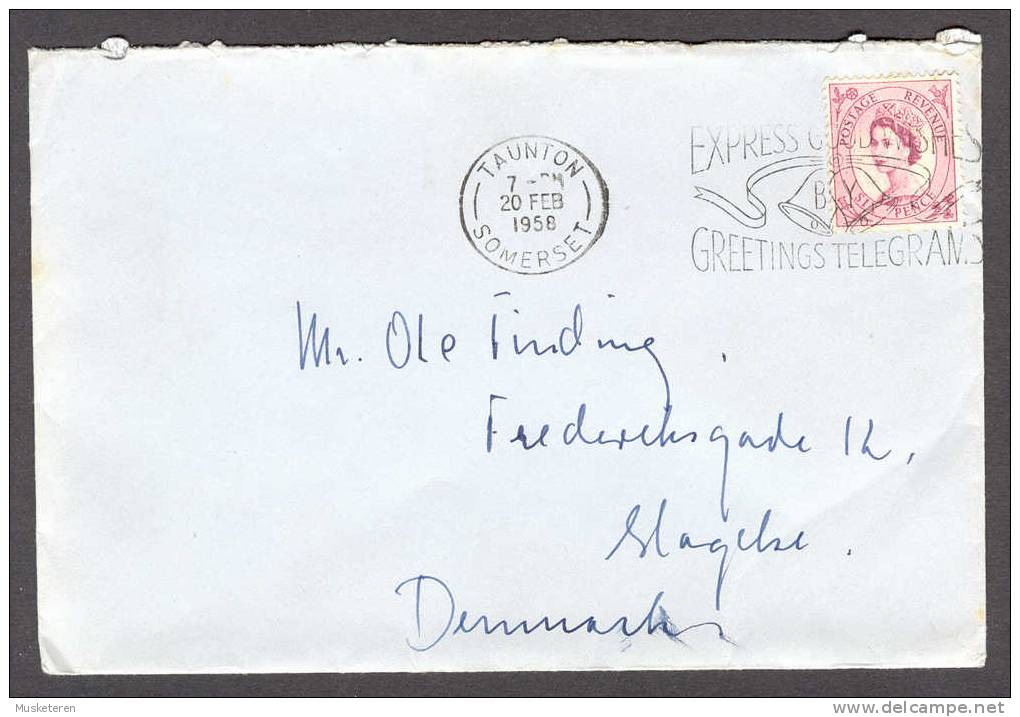 TAUNTON
7 - PM
20 FEB
1958
SOMERSET
EXPRESS GOOD WISHES
BY
GREETINGS TELEGRAMS
POSTAGE REVENUE
SIX PENCE
Mr. Ole Tinding.
Frederiksgade 12,
Slagelse.
Denmark
Musketeren
delcampe.net